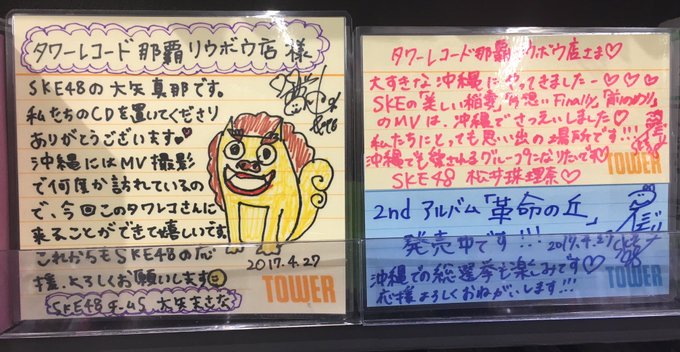 タワーレコード 那覇リウボウ店 様
SKE48の大矢真那です。
私たちのCDを置いてくださり
ありがとうございます♥
沖縄にはMV撮影
で何度か訪れているの
で、今回このタワレコさんに
来ることができて嬉しいです
これからもSKE48の応
援、よろしくお願いします
SKE48 チームS 大矢まさな
2017.4.27
TOWER
タワーレコード那覇リウボウ店さま♡
大すきな沖縄にやってきましたー♡♡♡
SKEの「美しい稲妻」「片想いFinally」「前のめり」
のMVは、沖縄でさつえいしました♡
私たちにとっても思い出の場所です!!!
沖縄でも愛されるグループになりたいです♡
SKE48 松井珠理奈♡
TOWER
2nd アルバム「革命の丘」
発売中です!!!
2017.4.27
沖縄での総選挙も楽しみです♡
応援よろしくおねがいします!!!
TOWER